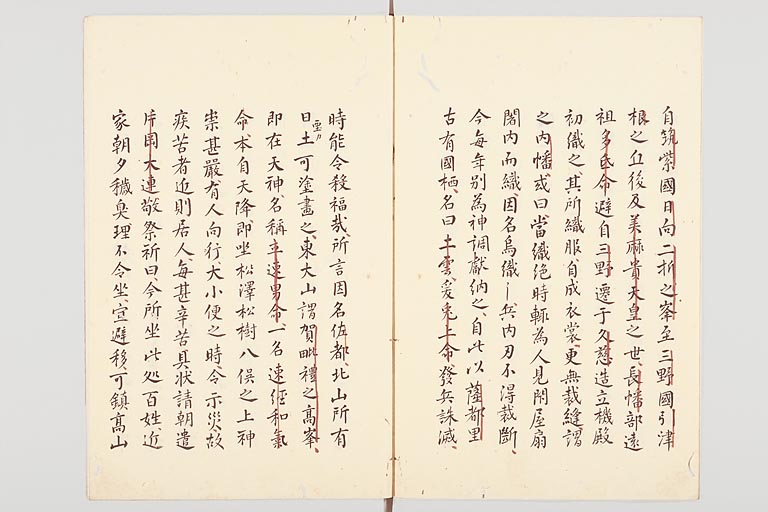 自筑紫國日向二折之峯至三野國引津
根之丘後及美麻貴天皇之世長幡部遠
祖多弖命避自三野遷于久慈造立機殿
初織之其所織服自成衣裳更無裁縫謂
之内幡或曰當織絁時輙為人見閇屋扇
闇内而織因名烏織｜兵内刃不得裁斷
今毎年别為神調獻納之自此以薩都里
古有國栖名曰土雲爰兎上命發兵誅滅
時能令殺福哉所言因名佐都北山所有
白土可塗畫之東大山謂賀毗禮之髙峯
即在天神名稱立速男命一名速經和氣
命本自天降即坐松澤松樹八俣之上神
祟甚嚴有人向行大小便之時令示災故
疾苦者近則居人毎甚辛苦具状請朝遣
片岡大連敬祭祈曰今所坐此処百姓近
家朝夕穢臭理不合坐宣避移可鎮髙山